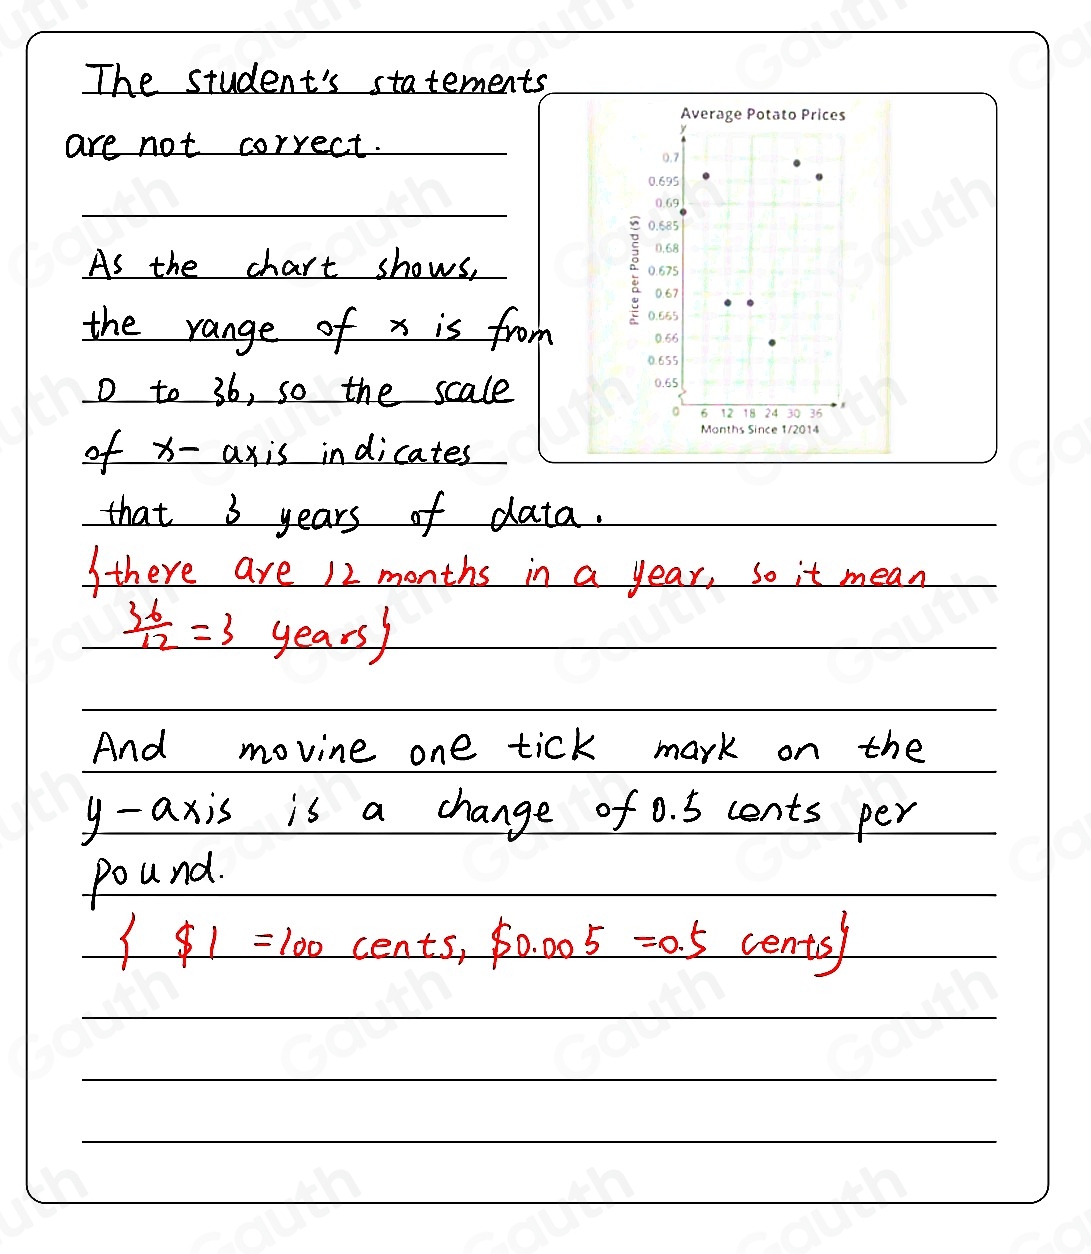 The student's statements
are not correct.
As the chart shows,
the range of x is from
0 to 36, so the scale
of x- axis indicates
that 3 years of data.
{there are 12 months in a year, so it mean
36/12 = 3 years}
And movine one tick mark on the
y-axis is a change of 0.5 cents per
pound.
{ $1 =100 cents, $0.005 =0.5 cents}
Average Potato Prices
y
0.7
0.695
0.69
0.685
0.68
0.675
0.67
0.665
0.66
0.655
0.65
Price per Pound ($)
0 6 12 18 24 30 36 x
Months Since 1/2014
Gauth